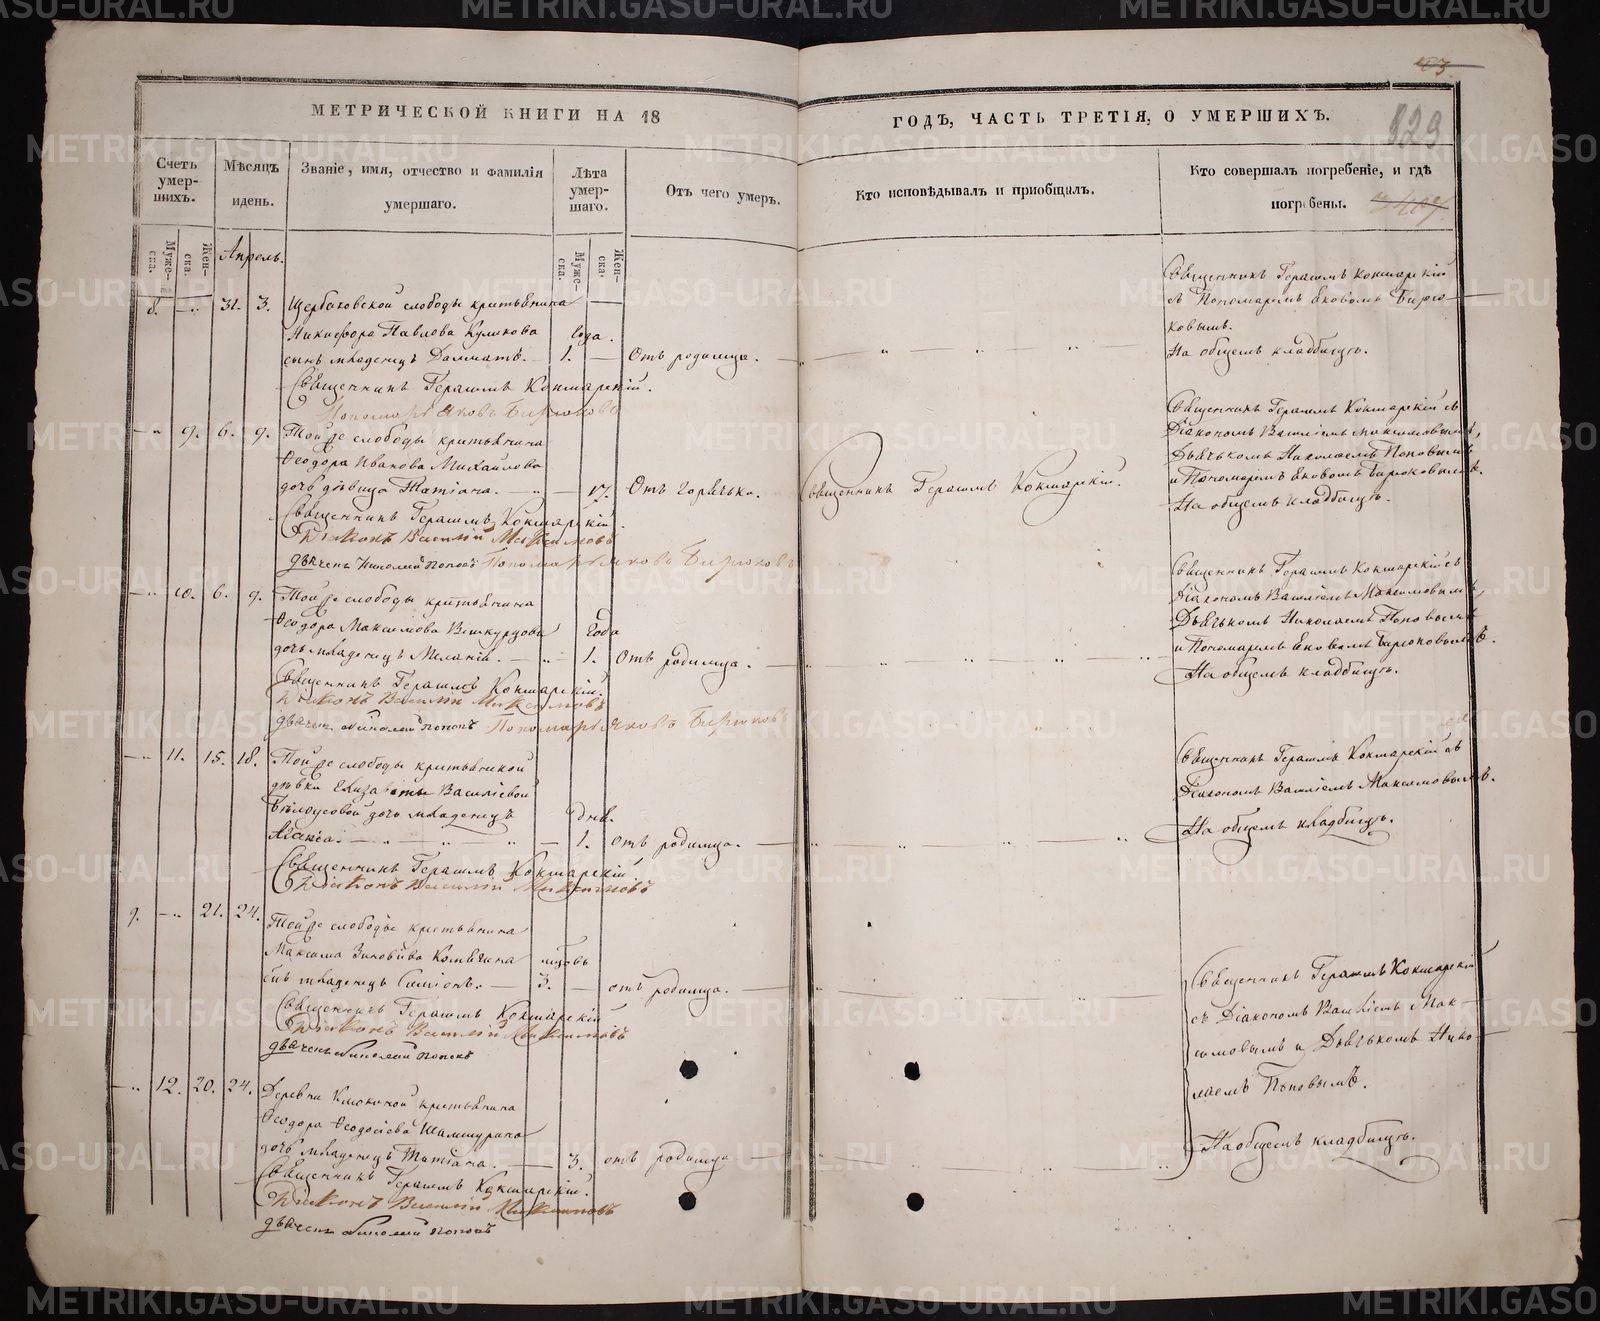 МЕТРИЧЕСКОЙ КНИГИ НА 18
ГОДЪ, ЧАСТЬ ТРЕТІЯ, О УМЕРШИХЪ.
Счетъ умер-
шихъ.
Мѣсяцъ
и день.
Званіе, имя, отчество и фамилія
умершаго.
Лѣта
умер-
шаго.
Отъ чего умеръ.
Кто исповѣдывалъ и приобщилъ.
Кто совершалъ погребеніе, и гдѣ
погребены.
Муже-
ска.
Жен-
ска.
Апрель.
Муже-
ска.
Жен-
ска.
8. 31. 3. Щербаковской слободы крестьянина
Никифора Павлова Куликова
сынъ младенецъ Далматъ.
года.
1.
Отъ родимца.
Священникъ Герасимъ Кокшарскій
съ Пономаремъ Яковомъ Бирю-
ковымъ.
На общемъ кладбищѣ.
Священникъ Герасимъ Кокшарскій.
Пономарь Яковъ Бирюковъ
9. 6. 9. Той же слободы крестьянина
Ѳеодора Иванова Михайлова
дочь дѣвица Татіана.
17.
Отъ горячки.
Священникъ Герасимъ Кокшарскій.
Священникъ Герасимъ Кокшарскій съ
Діакономъ Василіемъ Максимовымъ,
Дьячькомъ Николаемъ Поповымъ
и Пономаремъ Яковомъ Бирюковымъ.
На общемъ кладбищѣ.
Священникъ Герасимъ Кокшарскій.
Діаконъ Василій Максимовъ
дьячекъ Николай Поповъ Пономарь Яковъ Бирюковъ
10. 6. 9. Той же слободы крестьянина
Ѳеодора Максимова
дочь младенецъ Меланія.
года
1.
Отъ родимца.
Священникъ Герасимъ Кокшарскій съ
Діакономъ Василіемъ Максимовымъ,
Дьячькомъ Николаемъ Поповымъ
и Пономаремъ Яковомъ Бирюковымъ.
На общемъ кладбищѣ.
Священникъ Герасимъ Кокшарскій.
Діаконъ Василій Максимовъ
дьячекъ Николай Поповъ Пономарь Яковъ Бирюковъ
11. 15. 18. Той же слободы крестьянской
дѣвки Елизаветы Василіевой
Бѣлоусовой дочь младенецъ
дня.
1.
отъ родимца.
Священникъ Герасимъ Кокшарскій съ
Діакономъ Василіемъ Максимовымъ.
На общемъ кладбищѣ.
Священникъ Герасимъ Кокшарскій.
Діаконъ Василій Максимовъ
9. 21. 24. Той же слободы крестьянина
Максима Зиновіева
сынъ младенецъ Симіонъ.
3.
отъ родимца.
Священникъ Герасимъ Кокшарскій
съ Діакономъ Василіемъ Мак-
симовымъ и Дьячькомъ Нико-
лаемъ Поповымъ.
На общемъ кладбищѣ.
Священникъ Герасимъ Кокшарскій
Діаконъ Василій Максимовъ
дьячекъ Николай Поповъ
12. 20. 24. Деревни крестьянина
Ѳеодора Ѳеодосіева
дочь младенецъ Татіана.
3.
отъ родимца
Священникъ Герасимъ Кокшарскій.
Діаконъ Василій Максимовъ
дьячекъ Николай Поповъ
METRIKI.GASO-URAL.RU